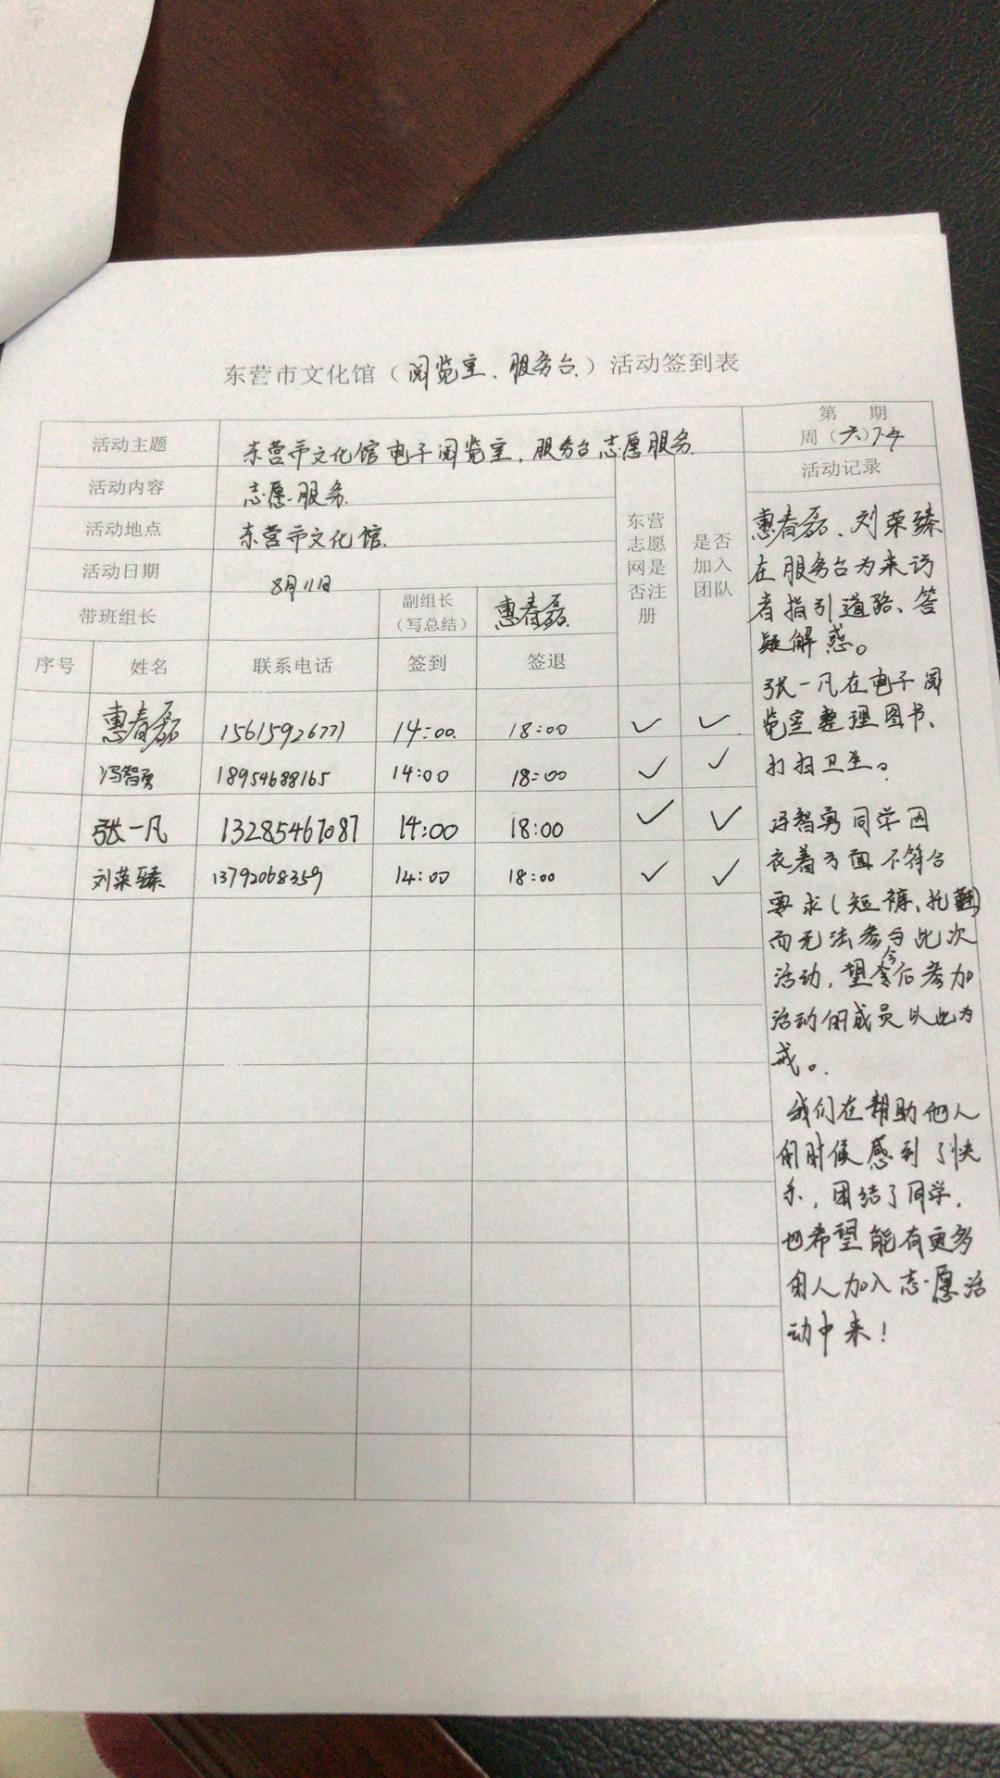 东营市文化馆（阅览室、服务台）活动签到表
活动主题 东营市文化馆电子阅览室、服务台志愿服务
第 期
周（六）下午
活动内容 志愿服务
活动地点 东营市文化馆
活动日期 8月11日
带班组长 副组长（写总结） 惠春磊
东营志愿网是否注册
是否加入团队
序号 姓名 联系电话 签到 签退
惠春磊 15615926771 14:00 18:00 ✓ ✓
冯智勇 18954688165 14:00 18:00 ✓ ✓
张一凡 13285467087 14:00 18:00 ✓ ✓
刘荣臻 13792068359 14:00 18:00 ✓ ✓
活动记录
惠春磊、刘荣臻
在服务台为来访
者指引道路、答
疑解惑。
张一凡在电子阅
览室整理图书、
打扫卫生。
冯智勇同学因
衣着方面不符合
要求（短裤、拖鞋）
而无法参与此次
活动，望今后参加
活动的成员以此为
戒。
我们在帮助他人
的时候感到了快
乐，团结了同学，
也希望能有更多
的人加入志愿活
动中来！